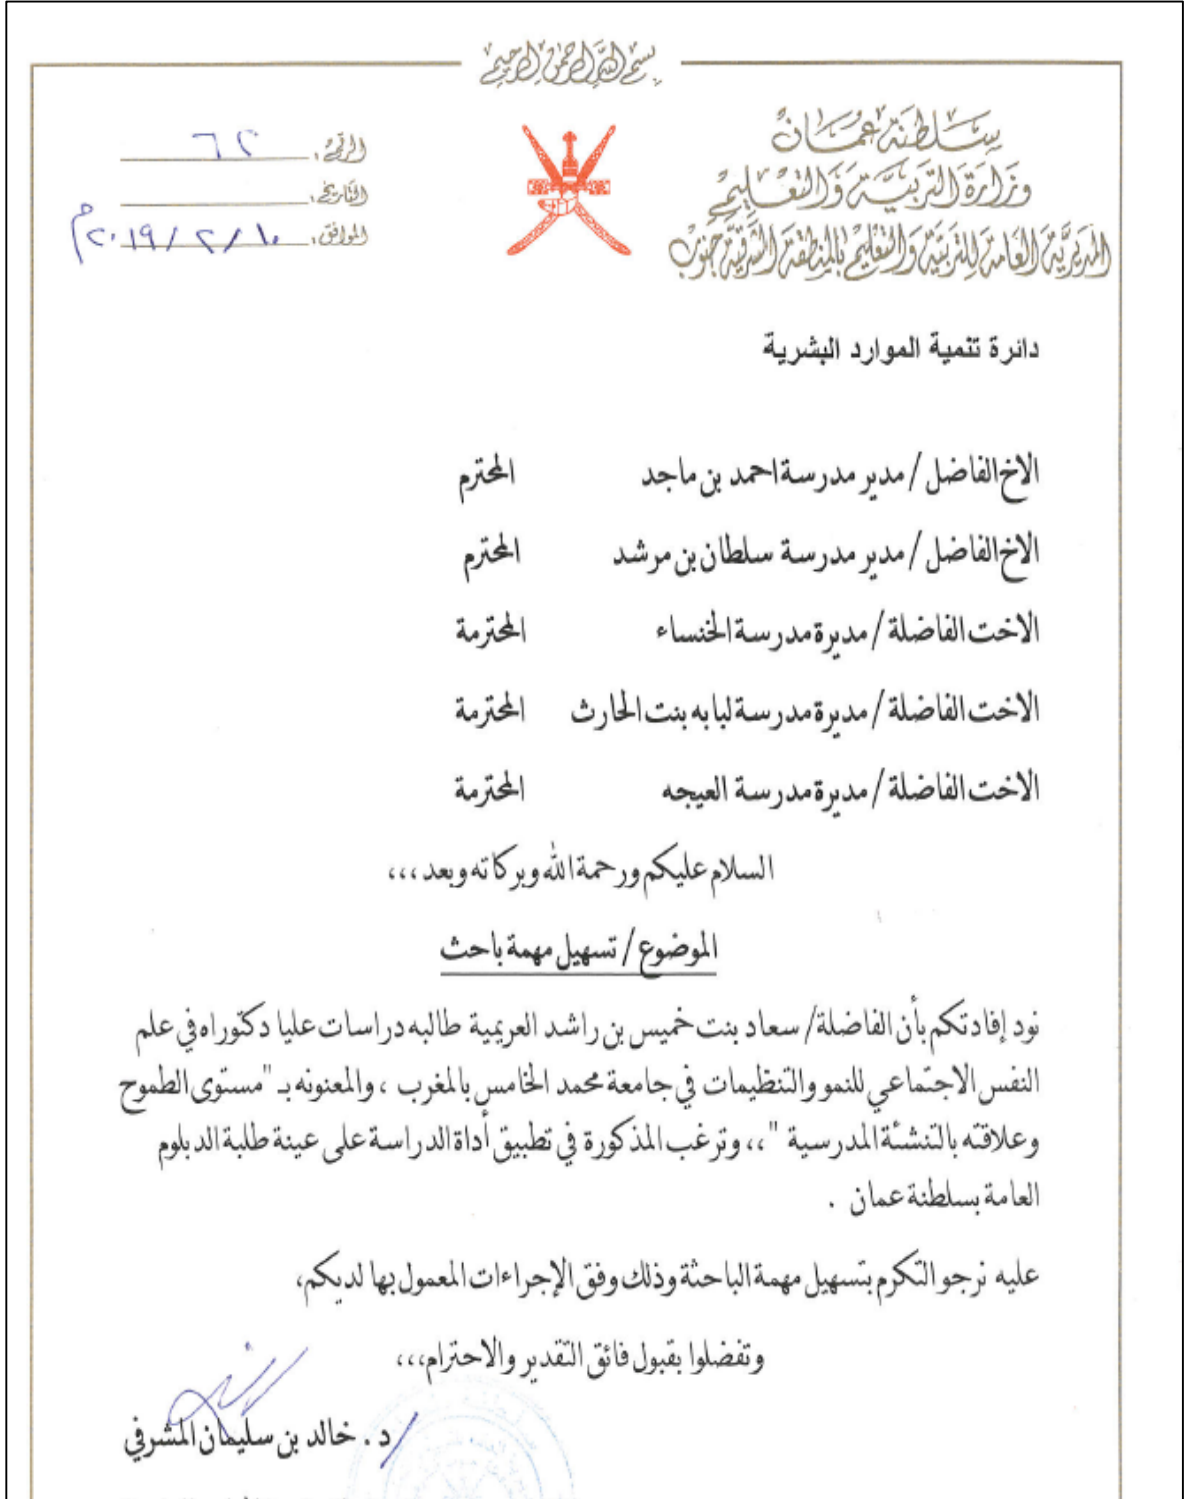 بسم الله الرحمن الرحيم
سلطنة عمان
وزارة التربية والتعليم
المديرية العامة للتربية والتعليم بالمنطقة الشرقية جنوب
الرقم: ٦٢
التاريخ:
الموافق: ١٠/٢/٢٠١٩م
دائرة تنمية الموارد البشرية
الاخ الفاضل / مدير مدرسة احمد بن ماجد المحترم
الاخ الفاضل / مدير مدرسة سلطان بن مرشد المحترم
الاخت الفاضلة / مديرة مدرسة الخنساء المحترمة
الاخت الفاضلة / مديرة مدرسة لبابه بنت الحارث المحترمة
الاخت الفاضلة / مديرة مدرسة العيجه المحترمة
السلام عليكم ورحمة الله وبركاته وبعد ،،،
الموضوع / تسهيل مهمة باحث
نود إفادتكم بأن الفاضلة/ سعاد بنت خميس بن راشد العريمية طالبه دراسات عليا دكتوراه في علم
النفس الاجتماعي للنمو والتنظيمات في جامعة محمد الخامس بالمغرب ، والمعنونه بـ "مستوى الطموح
وعلاقته بالتنشئة المدرسية "،، وترغب المذكورة في تطبيق أداة الدراسة على عينة طلبة الدبلوم
العامة بسلطنة عمان .
عليه نرجو التكرم بتسهيل مهمة الباحثة وذلك وفق الإجراءات المعمول بها لديكم،
وتفضلوا بقبول فائق التقدير والاحترام،،،
د . خالد بن سليمان المشرفي